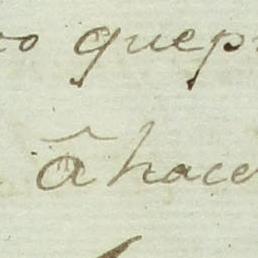 quep
â hace